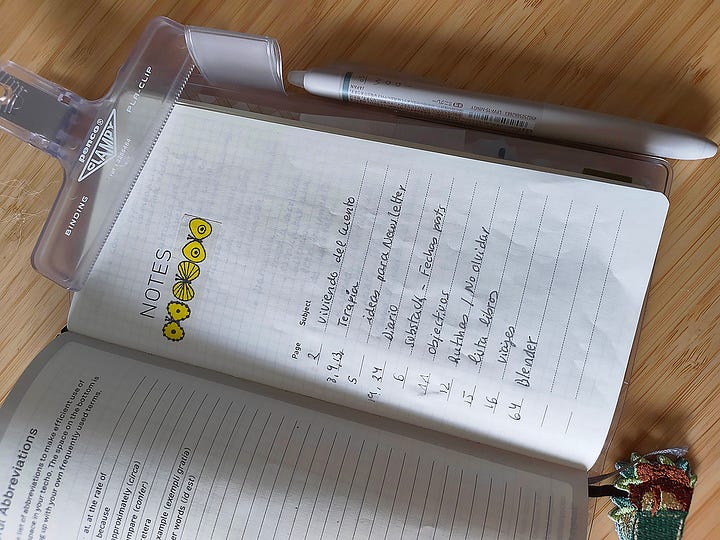 NOTES
Page Subject
2 Viviendo del cuento
8, 9, 13 Terapia
5 ideas para Newsletter
19, 24 Diario
6 Substack - Fechas posts
objectivos
12 / No olvidar
15 lista libros
16 Viajes
64 Blender
BINDING
penco®
CLAMPY
PLA-CLIP
JAPAN
Abbreviations
list of abbreviations to make efficient use of
space in your techo. The space on the bottom is
up with your own frequently used terms.
at, at the rate of
because
approximately (circa)
compare (confer)
etcetera
example (exempli gratia)
er words (id est)